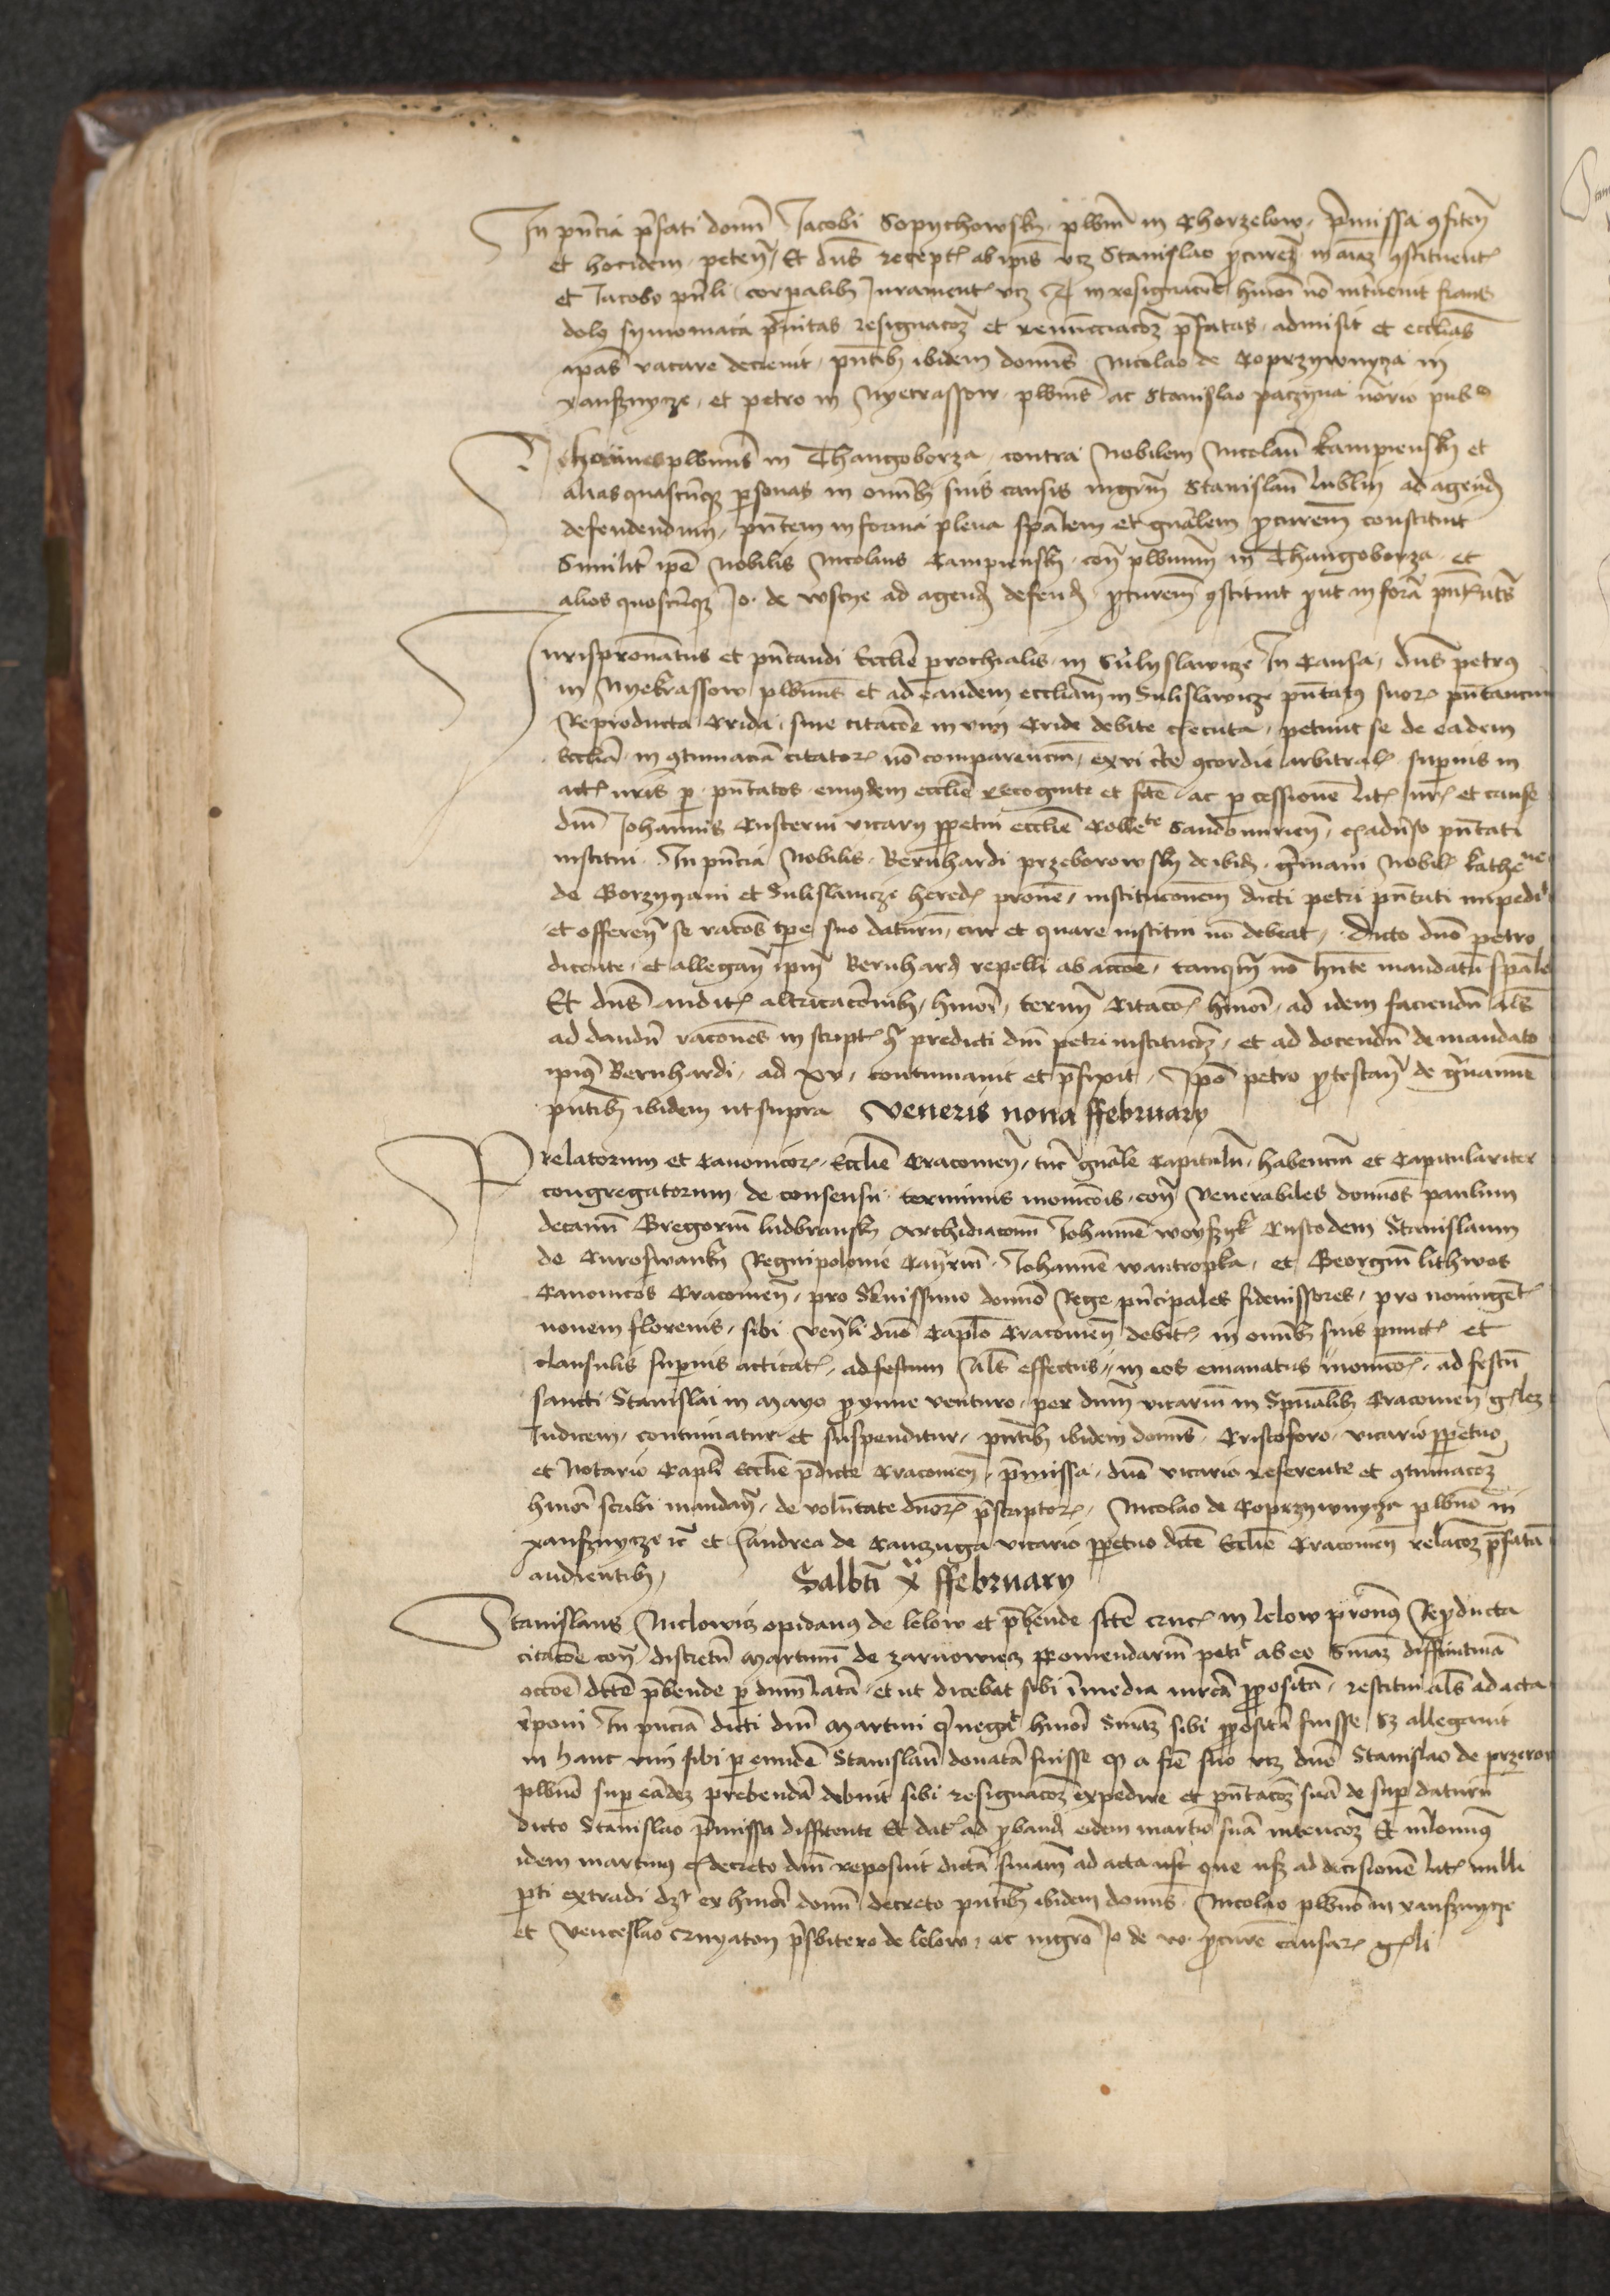 In pn̄cia p̄fati domī Jacobi Sopychowsky plbm̄ in Chorzelow p̄missa ꝯfiten̄
et hoc idem peten̄ Et dn̄s recept ab ip̄is vcz Stanislao p̄curē in aīaꝫ ꝯstituent
et Jacobo pn̄li corpalibꝫ Jurament vcz in resignacōe hmōi nō intervenit fraus
dolo symoniaca p̄vitas resignacōꝫ et renuncciacōꝫ p̄fatas admisit et ecclias
ip̄as vacare decrevit pn̄tibꝫ ibidem domīs Nicolao de Coprzywnycza in
xansznycze et petro in Nyecrassow plbnis ac Stanislao paczyna no͞rio pub͞co
Johannes plbnus in Thangoborza contra Nobilem Nicolaū Kampiensky et
alias quascūqꝫ personas in om̄ibꝫ suis causis mgr̄m Stanislaū lublin ad agend
defendendum pn̄tem in forma plena spālem et gn̄alem p̄curem̄ constituit
Similit ip̄e Nobilis Nicolaus Campiensky con̄ plbnum in Thangoborza et
alios quoscūqꝫ Jo. de wscye ad agend defend p̄curem̄ ꝯstituit put in for̄a pn̄t
Jurispronatus et pn̄tandi Ecclie prochialis in Sulyslawicze In Causa dn̄s petrus
in Nyekrassow plbnus et ad eandem eccliam in Sulislawicze pn̄tatus suor pn̄tancium
Reproducta Crida sive citacōe in vim Cride debite executa petivit se de eadem
Ecclia in ꝯtumaciā citator nō comparenciū ex vi ꝯcordie arbitral supius in
act nris p pn̄tatos eiusdem ecclie recognite et fcte ac p cessionē lit iur et cause
dn̄i Johannis Custerni vicary ppetui ecclie Colle͞te Sandomirien ex adūso pn̄tati
institui In pn̄cia Nobilis Bernhardi przeborowsky de ibid germani Nobil Kathe͞ne
de Borzyyani et Sulislawicze hered prone institucionem dicti petri pn̄tati impedi
et offeren̄ se racōes tpe suo daturū cur et quare institui nō debeat dicto dn̄o petro
dicente et allegan̄ ipm̄ Bernhard repelli ab accōe tanqm̄ nō hn̄te mandatū spāle
Et dn̄s audit altricacōnibꝫ hmōi termin̄ Citacō hmōi ad idem faciendū als
ad dandū racones in script ꝯ predicti dn̄i petri institucōꝫ et ad docendū de mandato
ipius Bernhardi ad xv continuavit et p̄fixit Ip̄o petro p̄testan̄ de gravamie
pn̄tibꝫ ibidem ut supra Veneris nona ffebruary
Prelatorum et Canonicor Ecclie Cracovien tūc gn̄ale Capitulū habenciū et Capitulariter
congregatorum de consensu terminus monicōis con̄ Venerabiles domīos paulum
decanū Gregoriū ludbransky Archidiaconū Johannē woyszyk Custodem Stanislaum
de Curoswanky Regni polonie Johannē wantropka et Georgiū lithwos
Canonicos Cracovien pro S̄eniss͞imo domīo Rege pn̄cipales fideiussores pro noningent
novem florenis sibi Ven̄li dn̄o Caplo Cracovien debit in om̄ibꝫ suis punct et
clausulis supius acticat ad festum als effectus in eos emanatus monicō ad festū
sancti Stanislai in Mayo p̄xime venturo per dnm̄ vicariū in Spūalibꝫ Cracovien ḡlez
Judicem continuatur et suspenditur pn̄tibꝫ ibidem domīs Cristoforo vicario ppetuo
et Notario Capli Ecclie p̄dicte Cracovien p̄missa dn̄o vicario referente et ꝯtinuacōꝫ
hmōi scribi mandan̄ de voluntate dn̄or p̄scriptor Nicolao de Coprzywnycza plbno in
xansznycze et Andrea de Canczuga vicario ppetuo dcte Ecclie Cracovien relacōꝫ p̄fatā
audientibꝫ Sabbti x ffebruary
Stanislaus Niclowicz opidanus de lelow et p̄bende scte cruc in lelow pronus Repducta
citacōe con̄ discretū Martinū de zarnowiecz Comendariū petit ab eo Sn̄iaꝫ diffinitivā
occōe dcte p̄bende p dnm̄ latā et ut dicebat sibi īmedia m͞rca ppositā restitui als ad acta
r̄poni In pn̄cia dicti dn̄i Martini q̄ negat hmōi Sn̄iaꝫ sibi ppositā fuisse Sꝫ allegavit
in hanc vim sibi p eundē Stanislaū donatā fuisse qꝫ a fre suo vcz dn̄o Stanislao de przerow
plbno sup eadeꝫ prebendā debuit sibi resignacōꝫ expedire et pn̄tacōꝫ suā desup daturū
dicto Stanislao p̄missa diffitente Et dat ad pband eidem Martino suā intencōꝫ Et nilominus
idem Martinus ex decreto dn̄i reposuit dictā sn̄iam ad acta que usqꝫ ad decisionē lit nulli
parti extradi dꝫ ex hmōi domī decreto pn̄tibꝫ ibidem domīs Nicolao plbno in xansznycze
et Venceslao Crzyaton p̄sbitero de lelow ac mgro Jo de w p̄curē causar ḡli